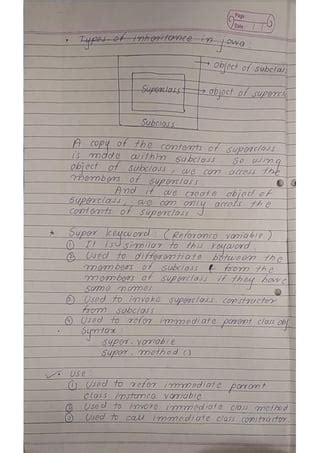 Page
Date
Types of inheritance in java
object of subclass
Superclass
object of supercl
Subclass
A copy of the contents of superclass
is made within subclass so using
object of subclass, we can access the
members of superclass.
And if we create object of
superclass, we can only access the
contents of superclass
Super keyword (Reference variable)
① It is similar to this keyword.
② Used to differentiate between the
members of subclass from the
members of superclass if they have
same names
③ Used to invoke superclass constructor
from subclass
④ Used to refer immediate parent class obj
Syntax:
super.variable
super.method()
Use
① Used to refer immediate parent
class instance variable
② Used to invoke immediate class method
③ Used to call immediate class constructor